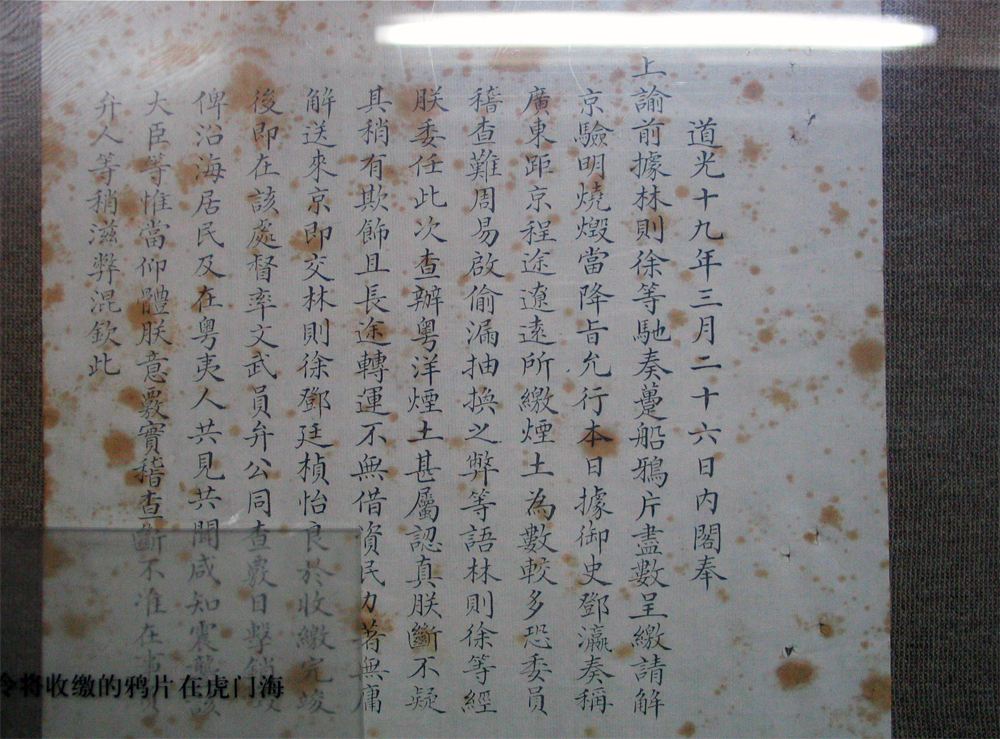 道光十九年三月二十六日內閣奉
上諭前據林則徐等馳奏躉船鴉片盡數呈繳請解
京驗明燒燬當降旨允行本日據御史鄧瀛奏稱
廣東距京程途遼遠所繳煙土為數較多恐委員
稽查難周易啟偷漏抽換之弊等語林則徐等經
朕委任此次查辦粵洋煙土甚屬認真朕斷不疑
其稍有欺飾且長途轉運不無借資民力著無庸
解送來京即交林則徐鄧廷楨怡良於收繳完竣
後即在該處督率文武員弁公同查覈目擊銷燬
俾沿海居民及在粵夷人共見共聞咸知震讋該
大臣等惟當仰體朕意覈實稽查斷不准在事員
弁人等稍滋弊混欽此
令将收缴的鸦片在虎门海